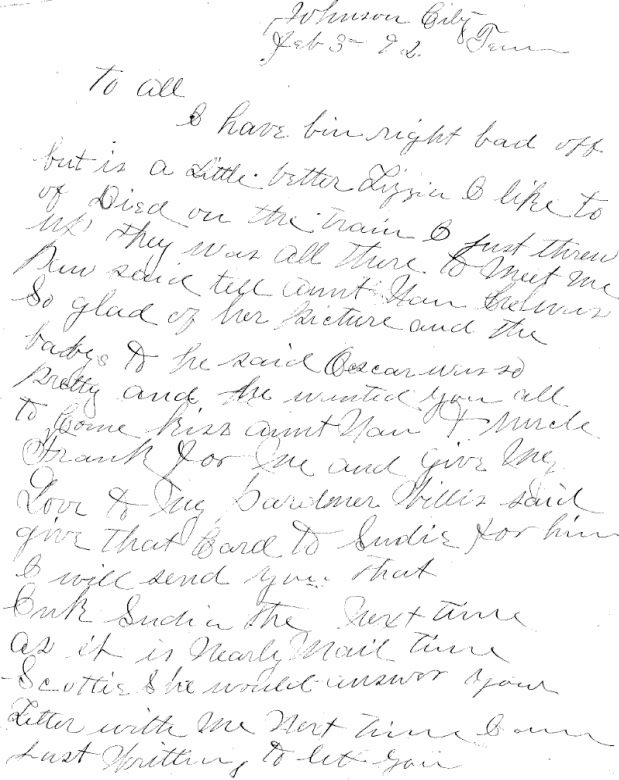 Johnson City
Feb 3 - 92. Tenn
to all
I have bin right bad off
but is a Little better Lizzie I like to
of Died on the train I Just threw
up They was all there to Meet me
said tell aunt Nan he was
So glad of her picture and the
babys to he said Oscar was so
pretty and he wanted you all
to come kiss aunt Nan & uncle
Frank for me and give my
Love to Willis said
give that Card to Sudie for him
I will send you that
Sudie the Next time
as it is Nearly Mail time
Scottie She would answer your
Letter with me Next time I am
Just Writting to let you